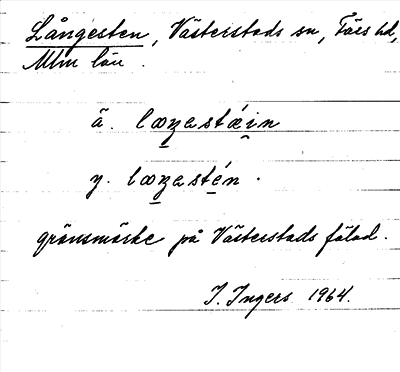 Långesten, Västerstads sn, Färs hd,
Mlm län.
ä. lœŋestáin
y. lœŋestén.
gränsmärke på Västerstads fälad.
I. Ingers 1964.